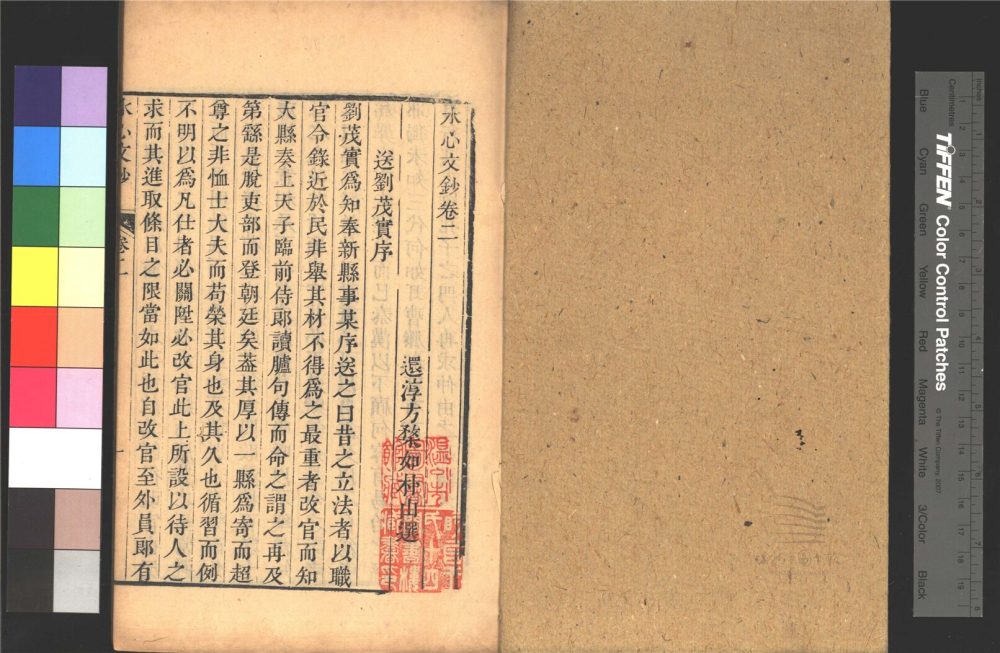 水心文鈔卷二
還淳方棃如朴山選
送劉茂實序
劉茂實爲知奉新縣事某序送之曰昔之立法者以職
官令錄近於民非舉其材不得爲之最重者改官而知
大縣奏上天子臨前侍郞讀臚句傳而命之謂之再及
第繇是脫吏部而登朝廷矣葢其厚以一縣爲寄而超
尊之非恤士大夫而苟榮其身也及其久也循習而例
不明以爲凡仕者必關陞必改官此上所設以待人之
求而其進取條目之限當如此也自改官至外員郞有
水心文鈔
卷二
一
TIFFEN Color Control Patches
© The Tiffen Company, 2007
Inches
Centimetres
Blue Cyan Green Yellow Red Magenta White 3/Color Black